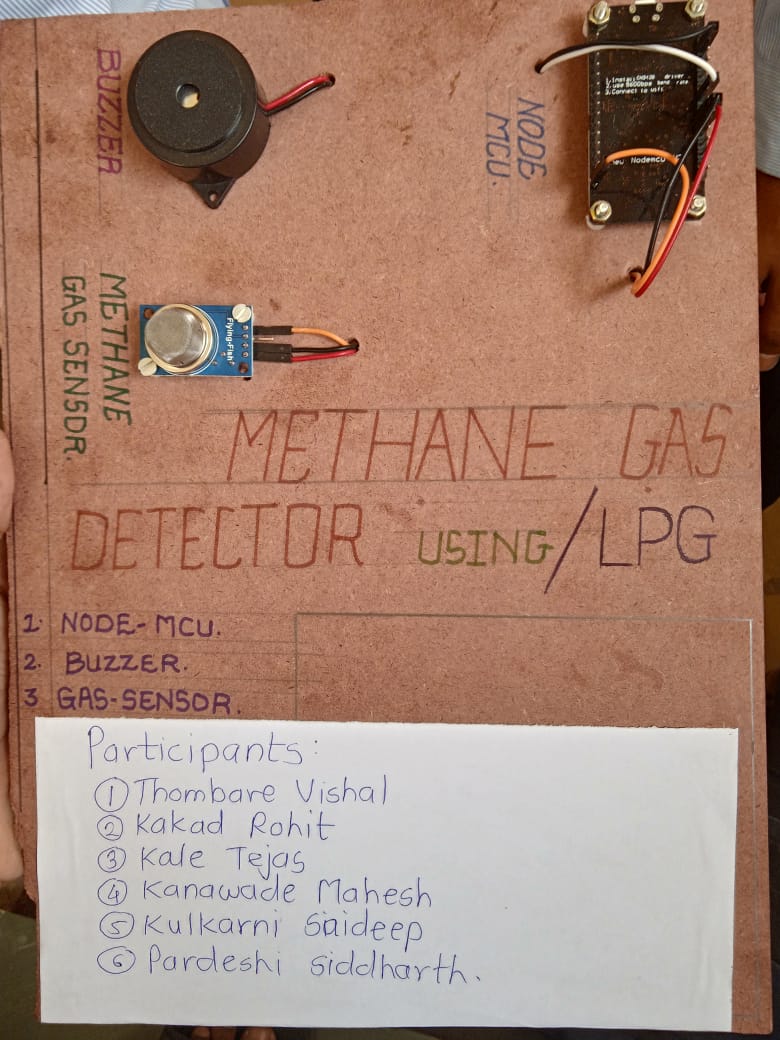 BUZZER
NODE
MCU.
1. Install CH340 driver
2. use 9600bps baud rate
3. Connect to wifi
Nodemcu
METHANE
GAS SENSOR.
Flying-Fish
METHANE GAS
DETECTOR USING/LPG
1. NODE-MCU.
2. BUZZER.
3 GAS-SENSOR.
Participants:
1 Thombare Vishal
2 Kakad Rohit
3 Kale Tejas
4 Kanawade Mahesh
5 Kulkarni Saideep
6 Pardeshi Siddharth.